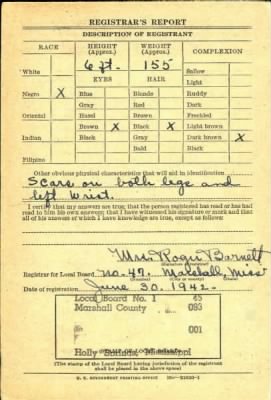 REGISTRAR'S REPORT
DESCRIPTION OF REGISTRANT
RACE HEIGHT (Approx.) WEIGHT (Approx.) COMPLEXION
6 ft. 155
White Sallow
EYES HAIR Light
Negro X Blue Blonde Ruddy
Gray Red Dark
Oriental Hazel Brown Freckled
Brown X Black X Light brown
Indian Black Gray Dark brown X
Bald Black
Filipino
Other obvious physical characteristics that will aid in identification
Scars on both legs and
left Wrist.
I certify that my answers are true; that the person registered has read or has had
read to him his own answers; that I have witnessed his signature or mark and that
all of his answers of which I have knowledge are true, except as follows:
Mrs. Roger Barnett
Registrar for Local Board No. 47. Marshall, Miss
Date of registration June 30. 1942.
Local Board No. 1 45
Marshall County 093
001
Holly Mississippi
(The stamp of the Local Board having jurisdiction of the registrant
shall be placed in the above space.)
U. S. GOVERNMENT PRINTING OFFICE